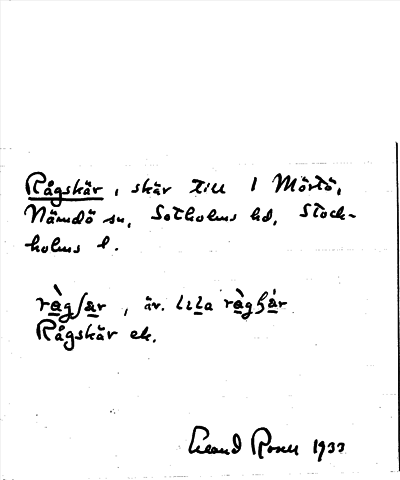 Rågskär, skär till 1 Mörtö,
Nämdö sn, Sotholms hd, Stock-
holms l.
règʃær, är. lila règʃær
Rågskär ek.
Rosell 1933